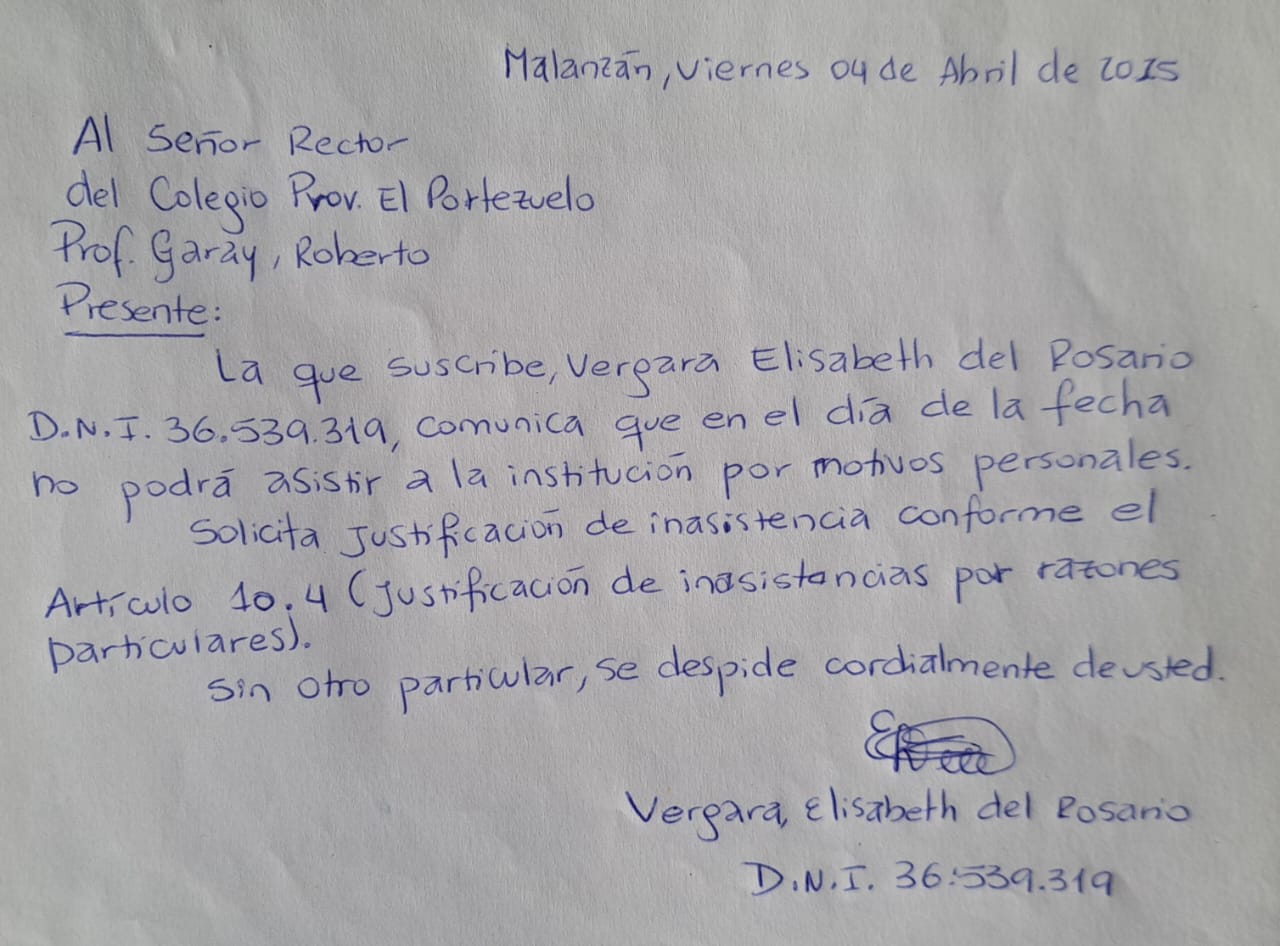 Malanzán, viernes 04 de Abril de 2025
Al Señor Rector
del Colegio Prov. El Portezuelo
Prof. Garay, Roberto
Presente:
La que suscribe, Vergara Elisabeth del Rosario
D.N.I. 36.539.319, comunica que en el día de la fecha
no podrá asistir a la institución por motivos personales.
Solicita Justificación de inasistencia conforme el
Artículo 10.4 (Justificación de inasistencias por razones
particulares).
Sin otro particular, se despide cordialmente de usted.
Vergara, Elisabeth del Rosario
D.N.I. 36.539.319